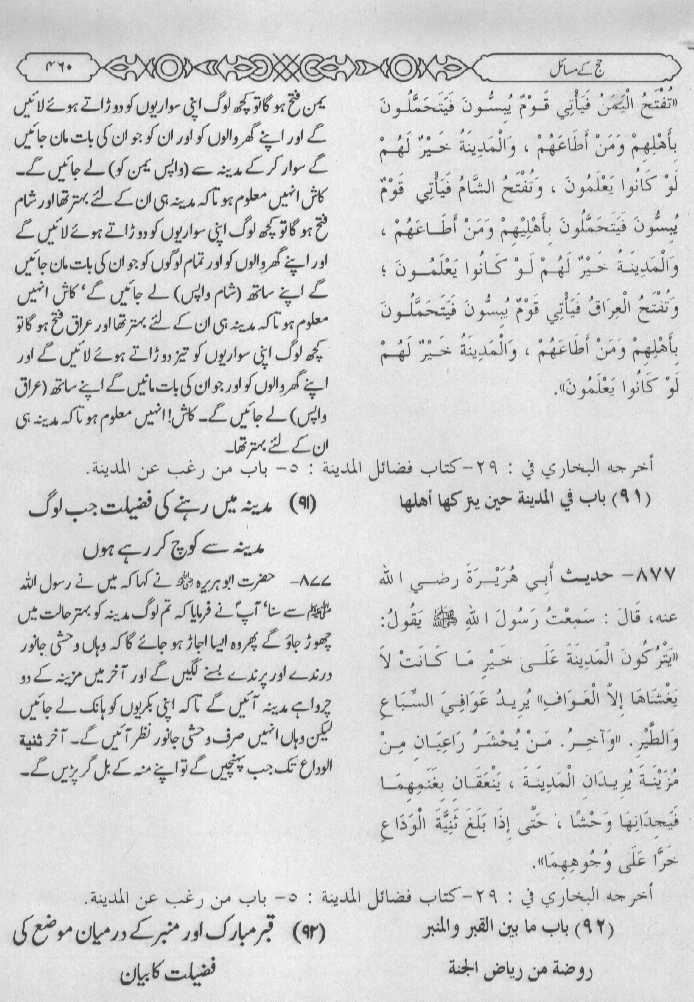 حج کے مسائل
۴۶۰
«تُفْتَحُ الْيَمَنُ فَيَأْتِي قَوْمٌ يُبِسُّونَ فَيَتَحَمَّلُونَ
بِأَهْلِهِمْ وَمَنْ أَطَاعَهُمْ ، وَالْمَدِينَةُ خَيْرٌ لَهُمْ
لَوْ كَانُوا يَعْلَمُونَ ، وَتُفْتَحُ الشَّامُ فَيَأْتِي قَوْمٌ
يُبِسُّونَ فَيَتَحَمَّلُونَ بِأَهْلِيْهِمْ وَمَنْ أَطَاعَهُمْ ،
وَالْمَدِينَةُ خَيْرٌ لَهُمْ لَوْ كَانُوا يَعْلَمُونَ ؛
وَتُفْتَحُ الْعِرَاقُ فَيَأْتِي قَوْمٌ يُبِسُّونَ فَيَتَحَمَّلُونَ
بِأَهْلِهِمْ وَمَنْ أَطَاعَهُمْ ، وَالْمَدِينَةُ خَيْرٌ لَهُمْ
لَوْ كَانُوا يَعْلَمُونَ».
یمن فتح ہو گا تو کچھ لوگ اپنی سواریوں کو دوڑاتے ہوئے لائیں
گے اور اپنے گھر والوں کو اور ان کو جو ان کی بات مان جائیں
گے سوار کر کے مدینہ سے (واپس یمن کو) لے جائیں گے۔
کاش انہیں معلوم ہوتا کہ مدینہ ہی ان کے لئے بہتر تھا اور شام
فتح ہو گا تو کچھ لوگ اپنی سواریوں کو دوڑاتے ہوئے لائیں گے
اور اپنے گھر والوں کو اور تمام لوگوں کو جو ان کی بات مان جائیں
گے اپنے ساتھ (شام واپس) لے جائیں گے‘ کاش انہیں
معلوم ہوتا کہ مدینہ ہی ان کے لئے بہتر تھا اور عراق فتح ہو گا تو
کچھ لوگ اپنی سواریوں کو تیز دوڑاتے ہوئے لائیں گے اور
اپنے گھر والوں کو اور جو ان کی بات مانیں گے اپنے ساتھ (عراق
واپس) لے جائیں گے۔ کاش! انہیں معلوم ہوتا کہ مدینہ ہی
ان کے لئے بہتر تھا۔
أخرجه البخاري في : ٢٩- كتاب فضائل المدينة : ٥- باب من رغب عن المدينة.
(٩١) باب في المدينة حين يتركها أهلها
(۹۱) مدینہ میں رہنے کی فضیلت جب لوگ
مدینہ سے کوچ کر رہے ہوں
٨٧٧- حديث أَبِي هُرَيْرَةَ رضي الله
عنه، قَالَ : سَمِعْتُ رَسُولَ اللهِ ﷺ يَقُولُ:
«يَتْرُكُونَ الْمَدِينَةَ عَلَى خَيْرِ مَا كَانَتْ لاَ
يَغْشَاهَا إِلاَّ الْعَوَافِ» يُرِيدُ عَوَافِيَ السِّبَاعِ
وَالطَّيْرِ. «وَآخِرُ مَنْ يُحْشَرُ رَاعِيَانِ مِنْ
مُزَيْنَةَ يُرِيدَانِ الْمَدِينَةَ ، يَنْعَقَانِ بِغَنَمِهِمَا
فَيَجِدَانِهَا وَحْشًا ، حَتَّى إِذَا بَلَغَ ثَنِيَّةَ الْوَدَاعِ
خَرَّا عَلَى وُجُوهِهِمَا».
۸۷۷- حضرت ابو ہریرہ ؓ نے کہا کہ میں نے رسول اللہ
ﷺ سے سنا‘ آپؐ نے فرمایا کہ تم لوگ مدینہ کو بہتر حالت میں
چھوڑ جاؤ گے پھر وہ ایسا اجاڑ ہو جائے گا کہ وہاں وحشی جانور
درندے اور پرندے بسنے لگیں گے اور آخر میں مزینہ کے دو
چرواہے مدینہ آئیں گے تاکہ اپنی بکریوں کو ہانک لے جائیں
لیکن وہاں انہیں صرف وحشی جانور نظر آئیں گے۔ آخر ثنیة
الوداع تک جب پہنچیں گے تو اپنے منہ کے بل گر پڑیں گے۔
أخرجه البخاري في : ٢٩- كتاب فضائل المدينة : ٥- باب من رغب عن المدينة.
(٩٢) باب ما بين القبر والمنبر
روضة من رياض الجنة
(۹۲) قبر مبارک اور منبر کے درمیان موضع کی
فضیلت کا بیان